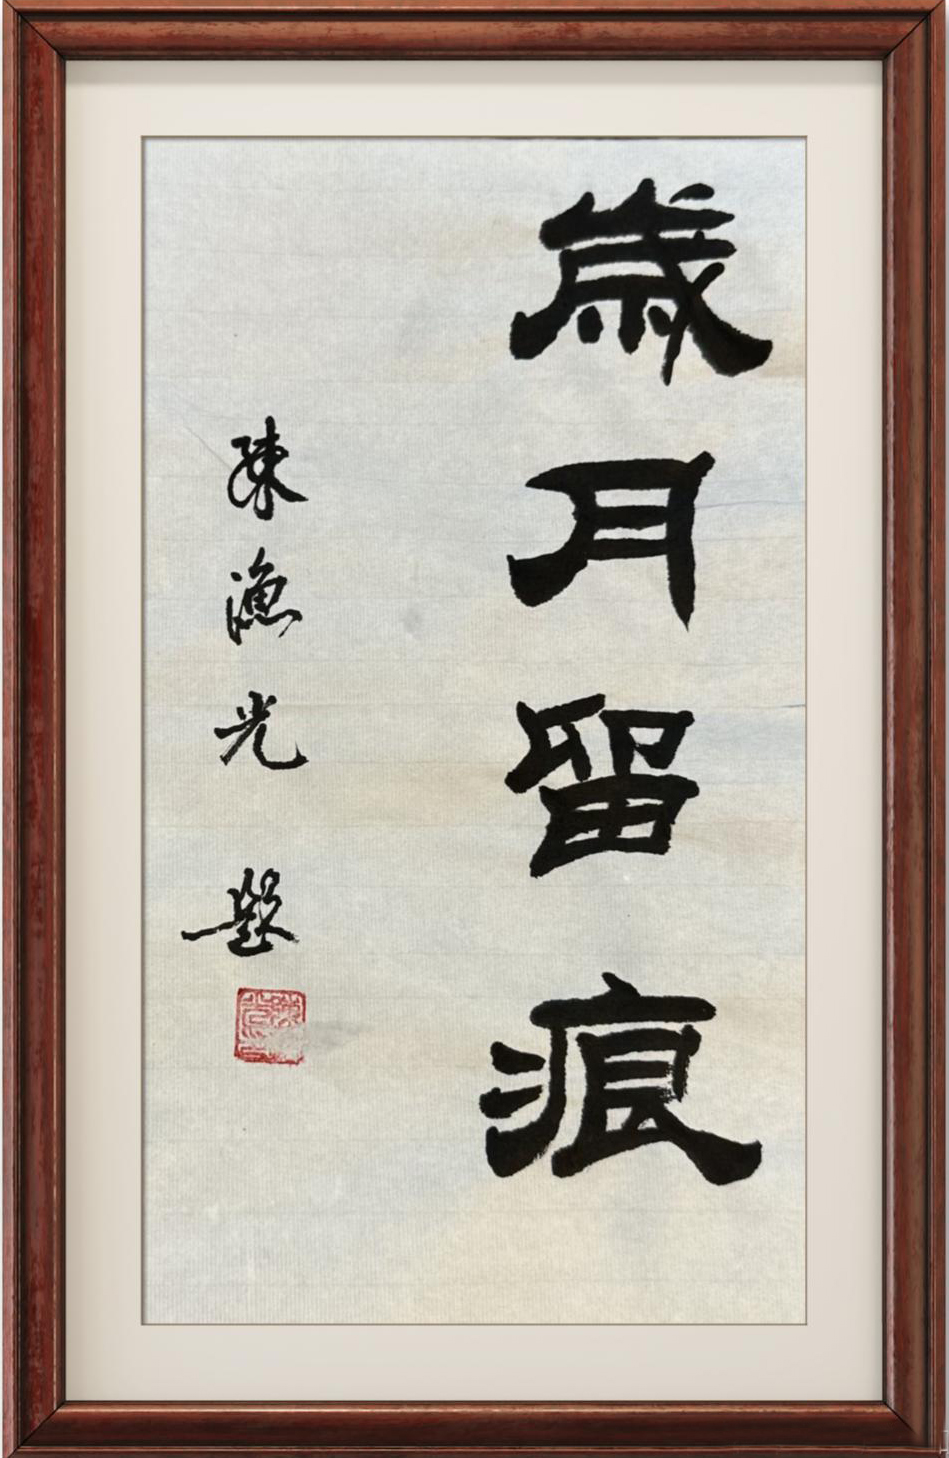 歲月留痕
陳漁光 題